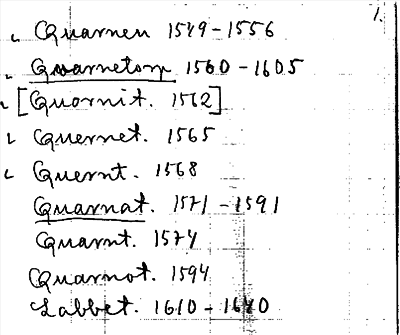 1.
Quarnen 1549-1556
Quarnetom 1560-1605
[Quornit. 1562]
Quernet. 1565
Quernt. 1568
Quarnat. 1571-1591
Quarnt. 1574
Quarnot. 1594
Labbet. 1610-1640